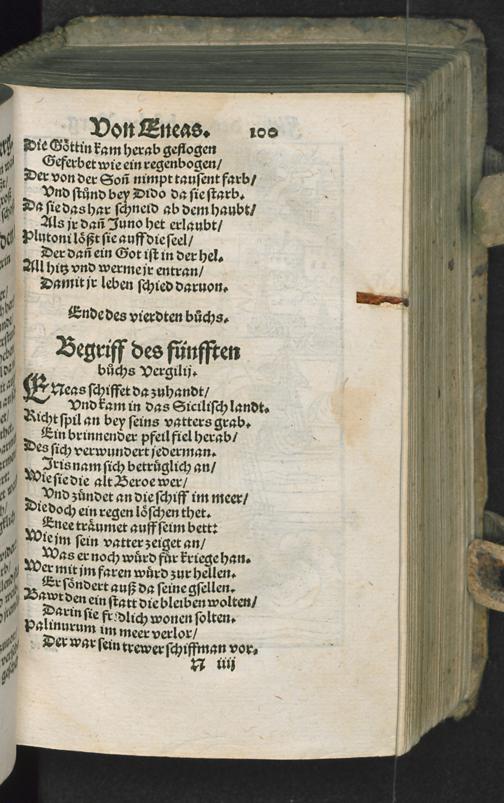 Von Eneas. 100
Die Göttin kam herab geflogen
Geferbet wie ein regenbogen/
Der von der Soñ nimpt tausent farb/
Vnd stůnd bey Dido da sie starb.
Da sie das har schneid ab dem haubt/
Als jr dañ Juno het erlaubt/
Plutoni lößt sie auff die seel/
Der dañ ein Got ist in der hel.
All hitz vnd werme jr entran/
Damit jr leben schied daruon.
Ende des vierdten bůchs.
Begriff des fünfften
bůchs Vergilij.
ENeas schiffet da zuhandt/
Vnd kam in das Sicilisch landt.
Richt spil an bey seins vatters grab.
Ein brinnender pfeil fiel herab/
Des sich verwundert jederman.
Iris nam sich betrüglich an/
Wie sie die alt Beroe wer/
Vnd zündet an die schiff im meer/
Die doch ein regen löschen thet.
Enee träumet auff seim bett:
Wie jm sein vatter zeiget an/
Was er noch würd für kriege han.
Wer mit jm faren würd zur hellen.
Er söndert auß da seine gsellen.
Bawt den ein statt die bleiben wolten/
Darin sie fridlich wonen solten.
Palinurum im meer verlor/
Der war sein trewer schiffman vor.
N iiij